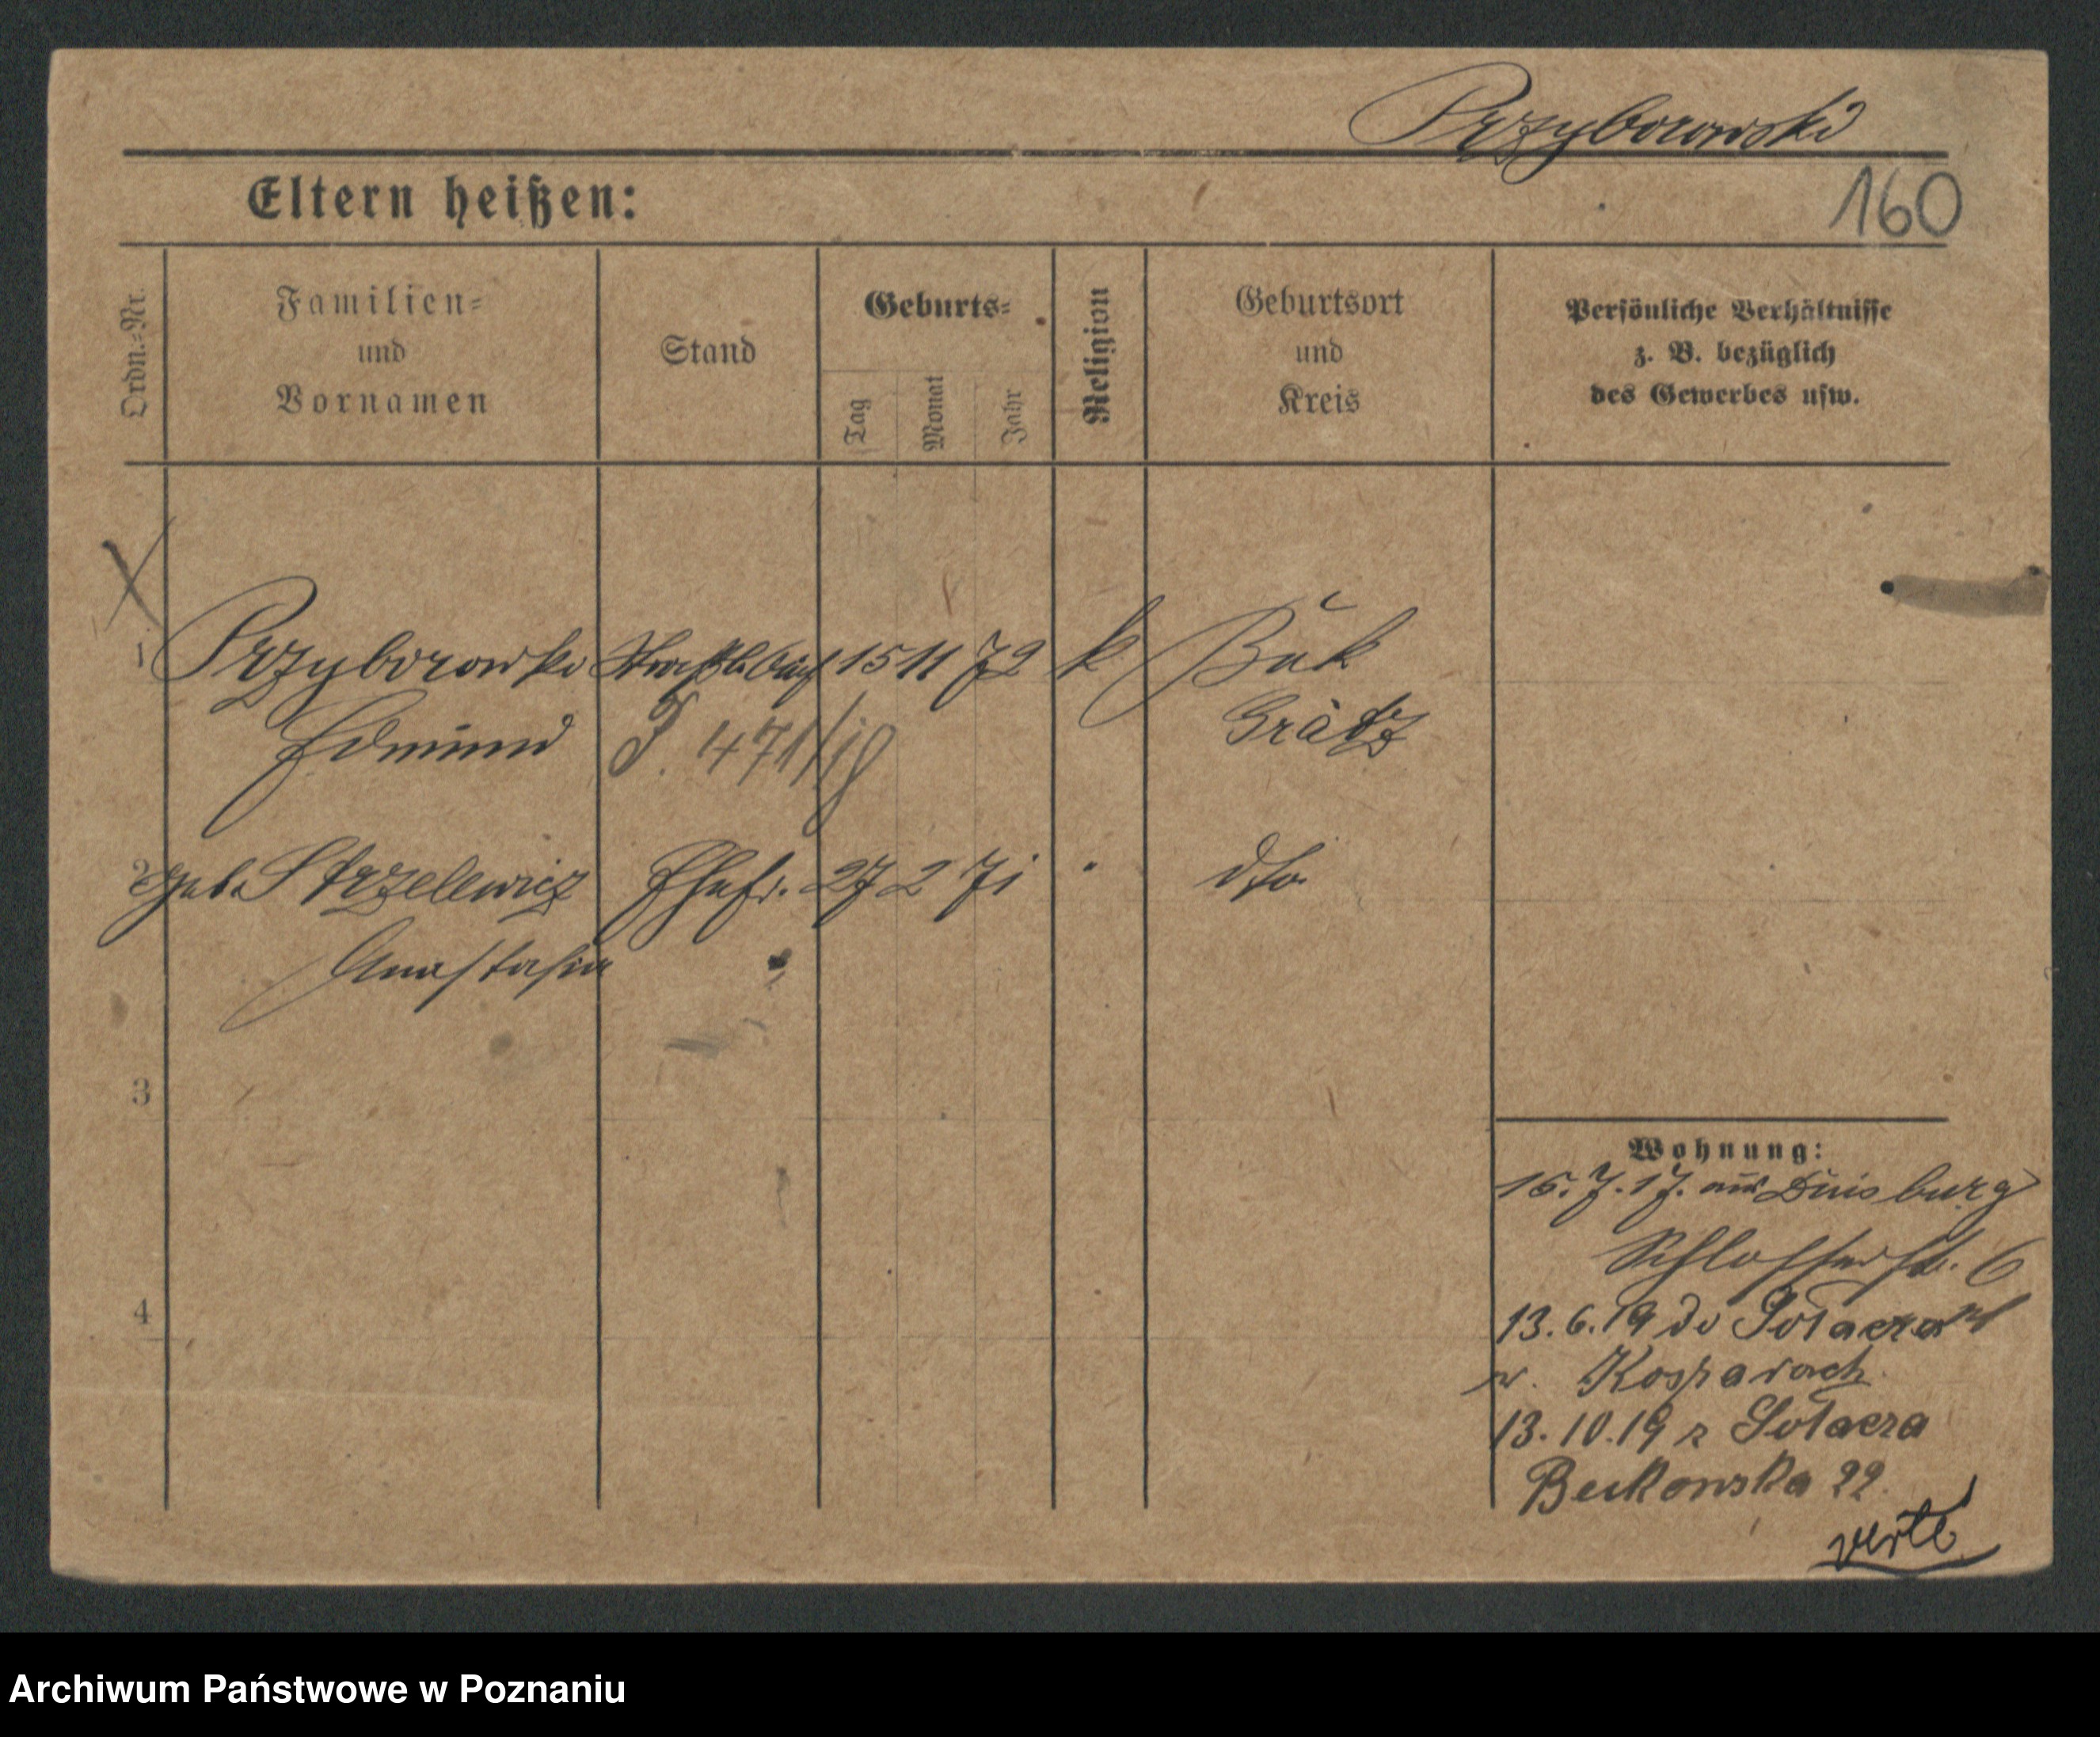 Przyborowski
160
Eltern heißen:
Ordn.-Nr.
Familien-
und
Vornamen
Stand
Geburts-
Tag
Monat
Jahr
Religion
Geburtsort
und
Kreis
Persönliche Verhältnisse
z. B. bezüglich
des Gewerbes usw.
1 Przyborowski 15 11 72 k Buk
Edmund T. 471/19 Grätz
2 geb. Strzelewicz Ehefr. 27 2 71 " dto.
Anastasia
3
4
Wohnung:
15. 7. 17. aus Duisburg
Schlosserstr. 6
13. 6. 19 do Sołacza
w.
13. 10. 19 z Sołacza
Bukowska 22.
verte
Archiwum Państwowe w Poznaniu